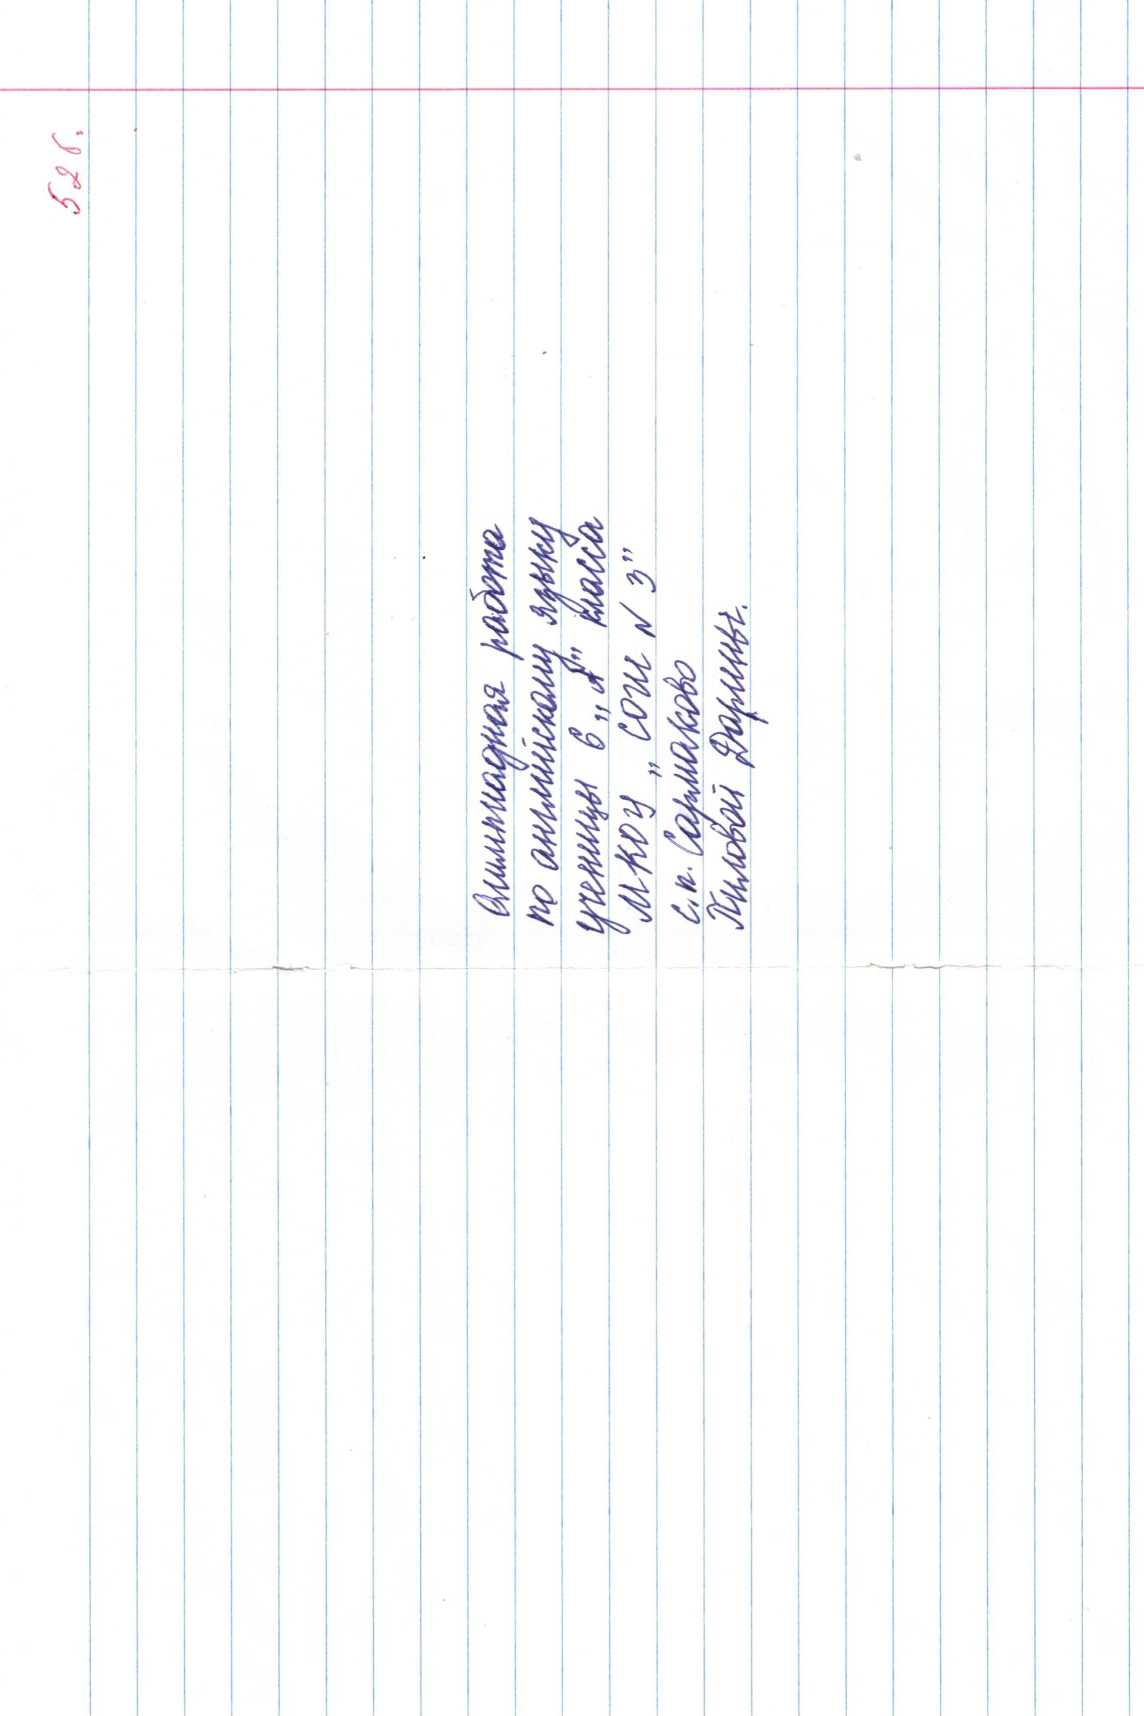 52 б.
Олимпиадная работа
по английскому языку
ученицы 6 „А" класса
МКОУ „СОШ N 3"
с.п. Сармаково
Дарины.